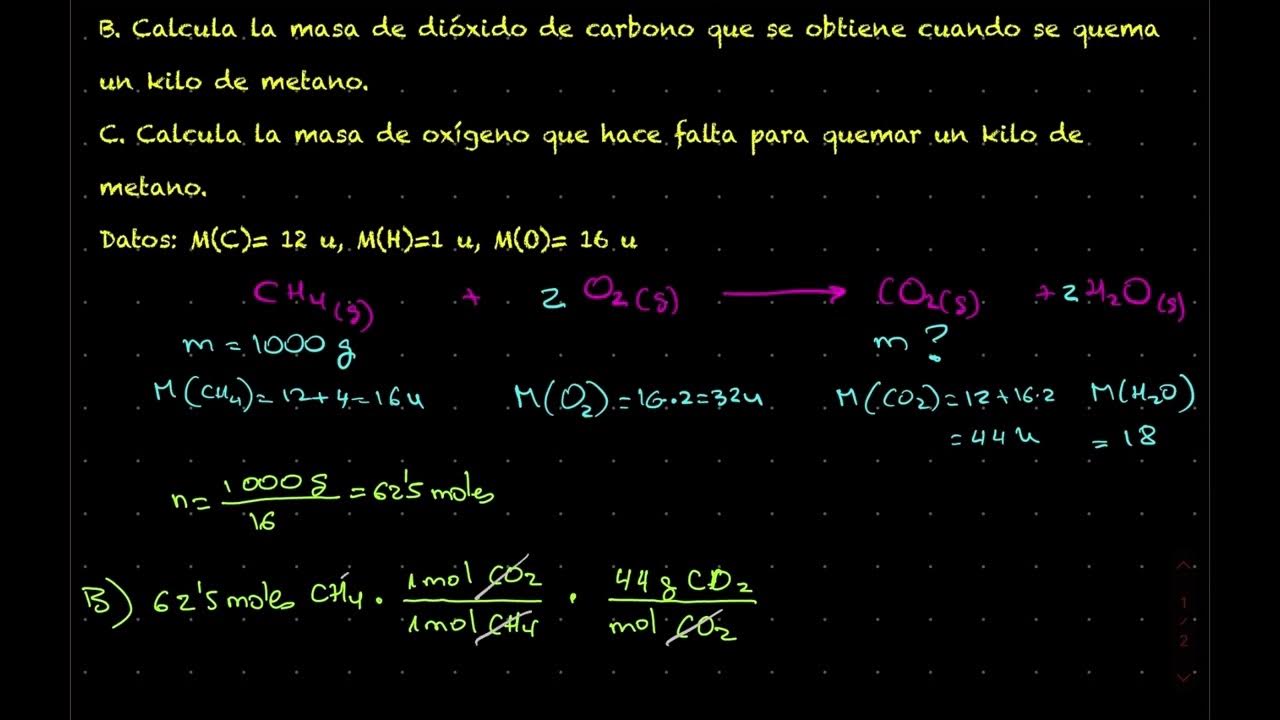 B. Calcula la masa de dióxido de carbono que se obtiene cuando se quema
un kilo de metano.
C. Calcula la masa de oxígeno que hace falta para quemar un kilo de
metano.
Datos: M(C)= 12 u, M(H)=1 u, M(O)= 16 u
CH4(g) + 2 O2(g) ⟶ CO2(g) + 2 H2O(g)
m = 1000 g m ?
M(CH4) = 12 + 4 = 16 u M(O2) = 16·2 = 32 u M(CO2) = 12 + 16·2 M(H2O)
= 44 u = 18
n = 1000 g / 16 = 62'5 moles
B) 62'5 moles CH4 · 1 mol CO2 / 1 mol CH4 · 44 g CO2 / mol CO2
1
/
2